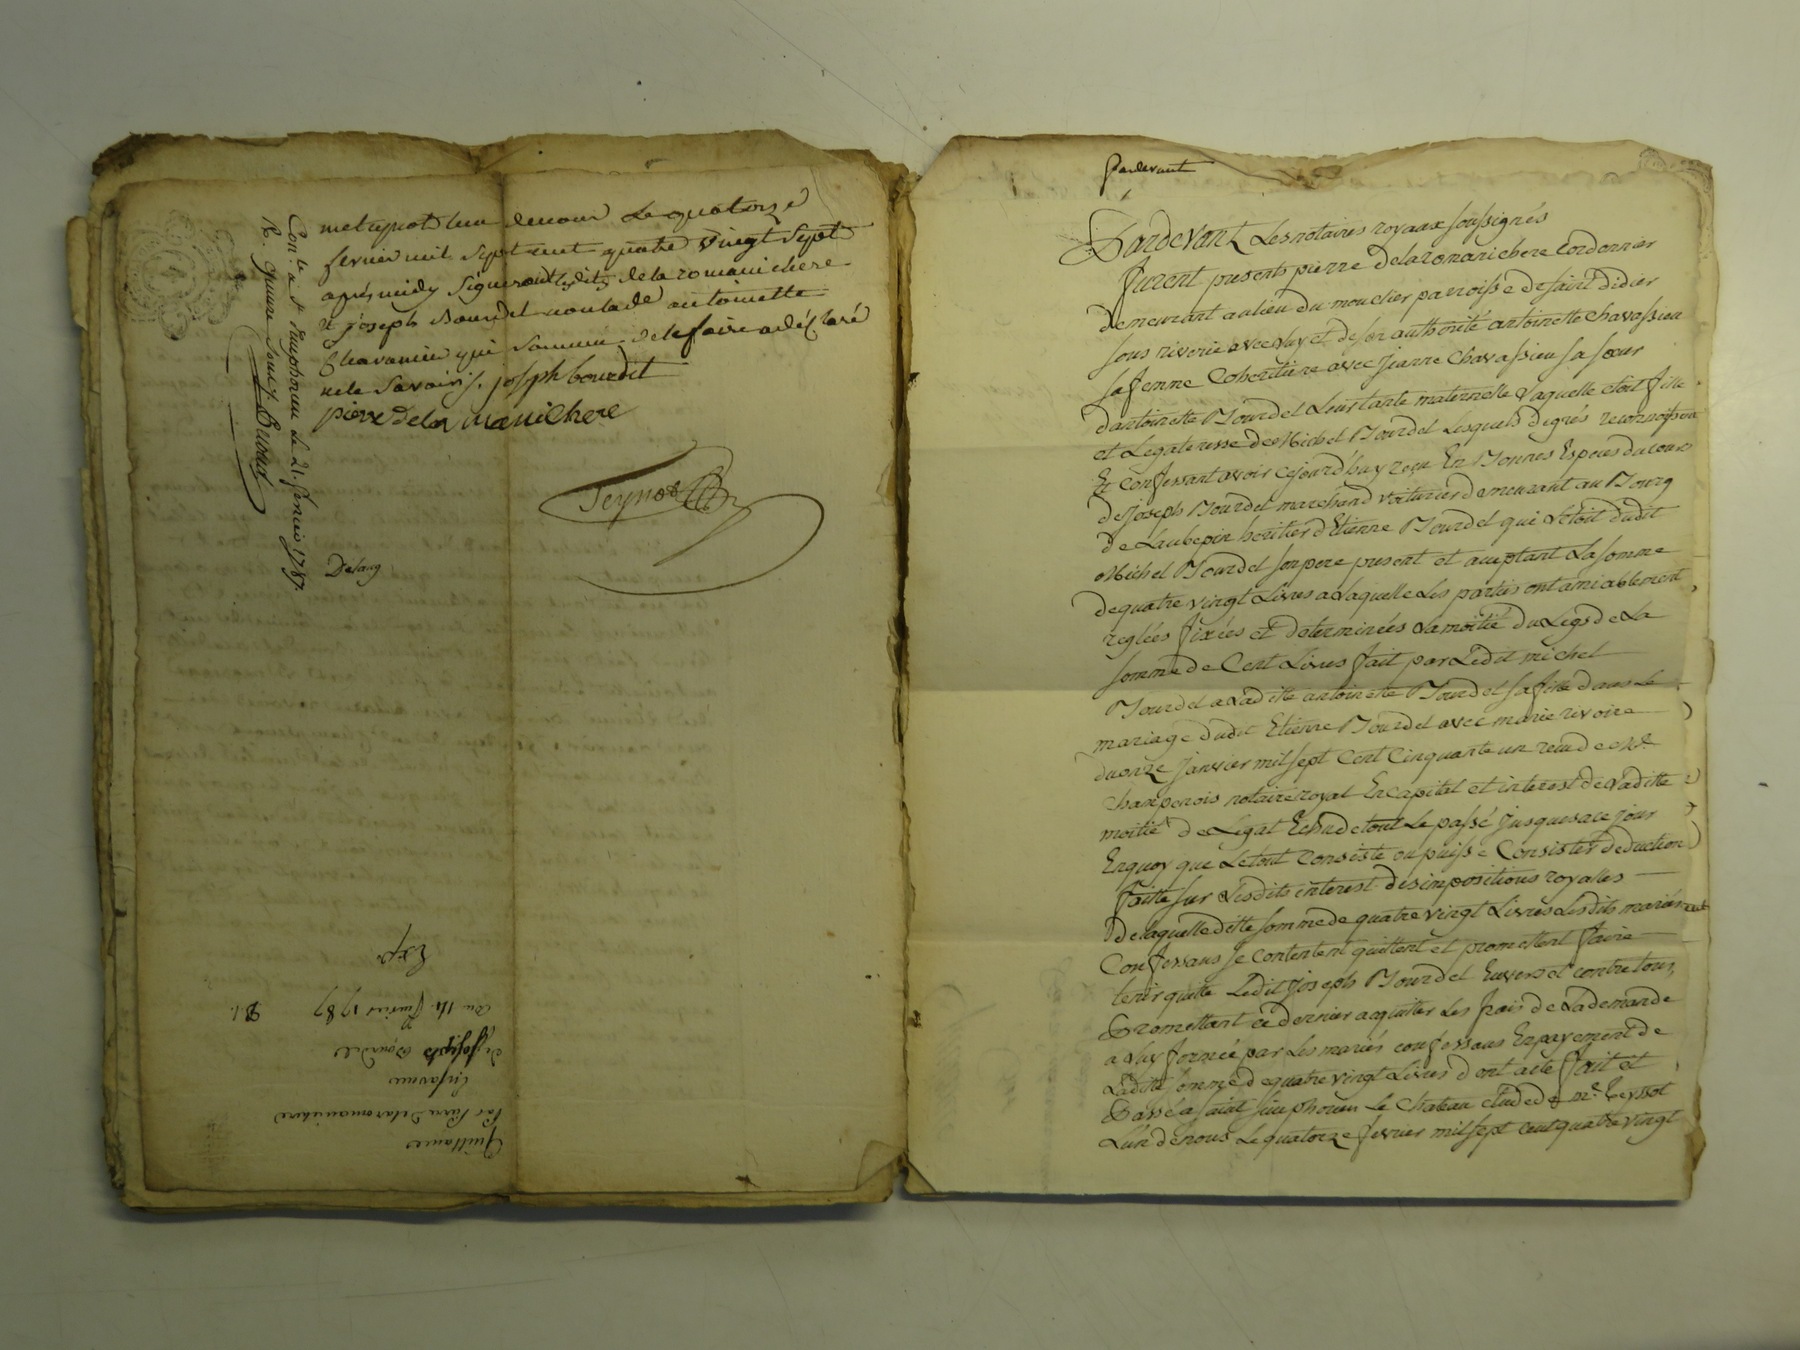 metteynod l'un de nous le quatorze
fevrier mil sept cent quatre vingt sept
après midy signeront lesdits delaromanichere
et joseph Bourdel non lade antoinette
Chavassieu qui sommée de le faire a déclaré
ne le Savoir /. joseph bourdil
pierre dela manichere
Teynod
Con.lé a St Simphorien le 21. fevrier 1787.
R. quinze sous /.
Desang
Quittance
Par Pierre Delaromanichere
En faveur
de joseph Bourdel
du 14. fevrier 1787
Exp.
Pardevant
Pardevant Les notaires royaux soussignés
furent presents pierre Delaromanichere Cordonnier
demeurant au lieu du mouclier parroisse de saint didier
sous riverie avec Luy et de son authorité antoinette Chavassieu
sa femme Coheritiere avec jeanne Chavassieu sa sœur
d'antoinette Bourdel Leur tante maternelle Laquelle etoit fille
et Legateresse de Michel Bourdel Lesquels de grés reconnoissent
Et Confessant avoir cejourd'huy reçu En Bonnes Especes du cours
de joseph Bourdel marchand voiturier demeurant au Bourg
de Laubepin heritier d'Etienne Bourdel qui L'etoit dudit
Michel Bourdel son pere present et acceptant La somme
de quatre vingt Livres a Laquelle Les parties ont amiablement
reglées fixées et determinées La moitié du Legs de La
somme de Cent Livres fait par Ledit michel
Bourdel a Laditte antoinette Bourdel sa fille dans Le
mariage dudit Etienne Bourdel avec marie rivoire
du onze janvier mil sept Cent Cinquante un reçu de Me.
champenois notaire royal En capital et interest de Laditte
moitié de Legat Echu de tout Le passé jusques a ce jour
En quoy que Le tout Consiste ou puisse Consister deduction
faitte sur Lesdits interest des impositions royalles
De laquelle ditte somme de quatre vingt Livres Lesdits mariés
Confessans se contentent quittent et promettent faire
tenir quitte Ledit joseph Bourdel Envers et contre tous
Promettant ce dernier acquitter Les frais de La demande
a Luy formée par Les mariés confessans En payement de
Laditte somme de quatre vingt Livres dont acte fait et
Passé a saint simphorien Le Chateau etude de me. Teynod
L'un de nous Le quatorze fevrier mil sept cent quatre vingt